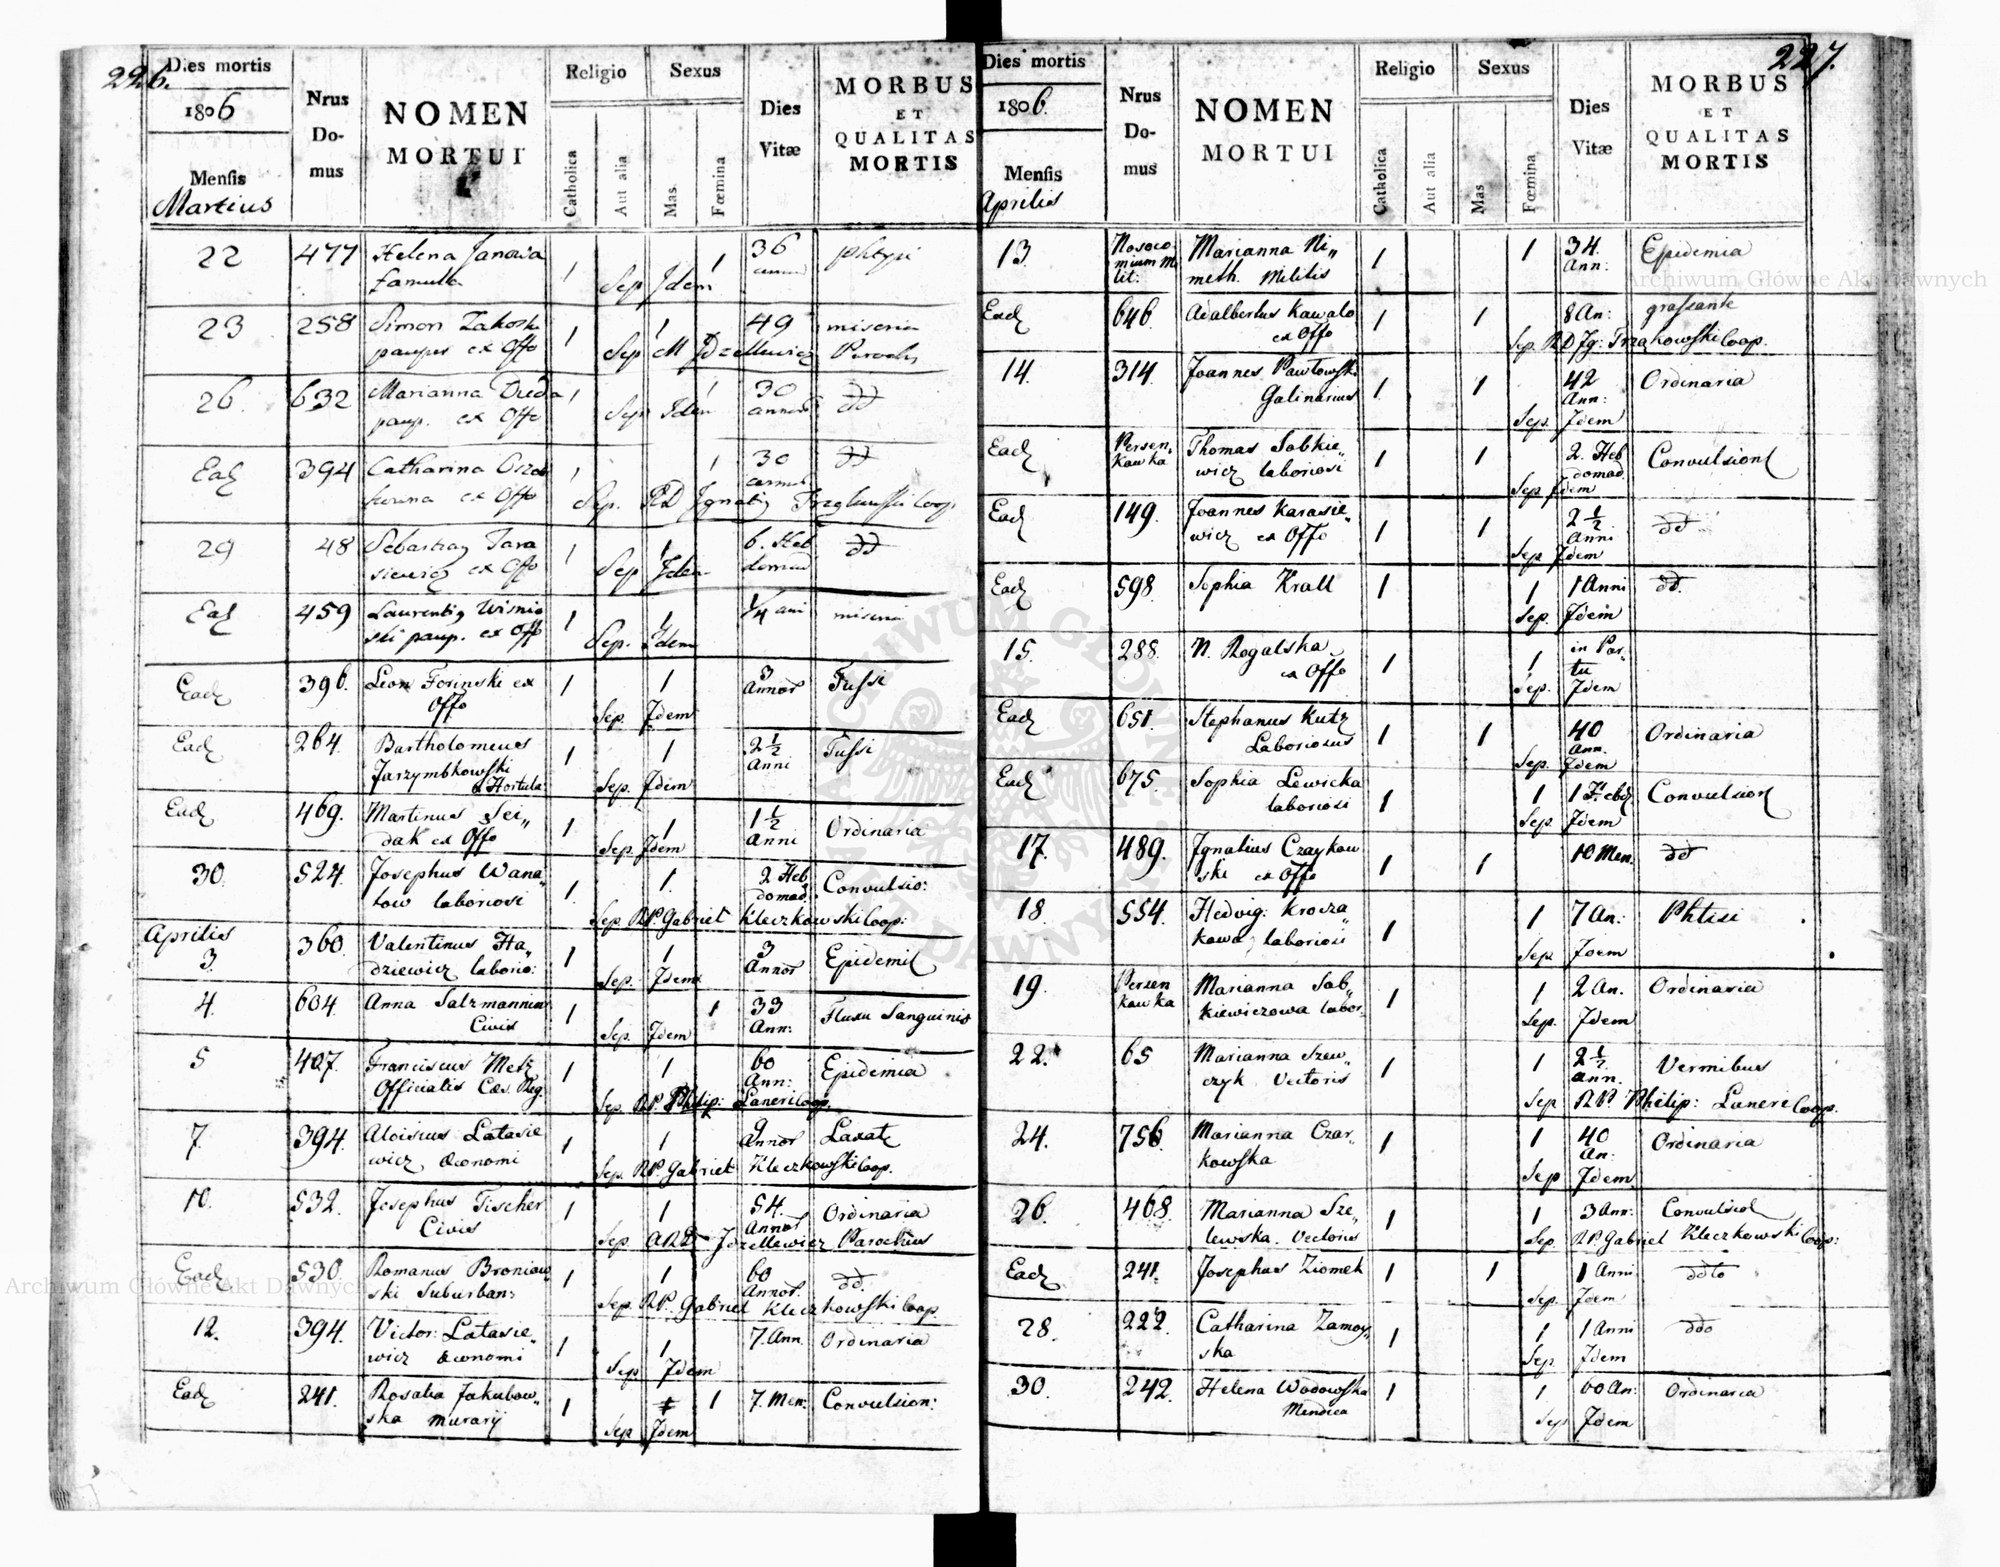 226.
Dies mortis
1806
Mensis
Martius
Nrus Do-mus
NOMEN
MORTUI
Religio
Catholica
Aut alia
Sexus
Mas.
Fœmina
Dies Vitæ
MORBUS
ET
QUALITAS
MORTIS
22 477 Helena Janowa 1 1 36 phtysi
famula Sep Idem
23 258 Simon Zakoski 1 1 49 miseria
pauper ex Offo Sep Parochus
26. 632 Marianna 1 1 30 dd
paup. ex Offo Sep Idem annor
Ead 394 Catharina 1 1 30 dd
ex Offo Sep. RD Ignatz Coop
29 48 Sebastian Tara 1 1 6. Heb dd
siewicz ex Offo Sep Idem domad
Ead 459 Laurentiy Wisnio 1 1 1/4 ani miseria
ski paup. ex Off Sep. Idem
Ead 396. Leon Forinski ex 1 1 3 Annor Tussi
Offo Sep. Idem
Ead 264. Bartholomeus 1 1 2 1/2 Anni Tussi
Jarzymbkowski
Hortula: Sep. Idem
Ead 469. Martinus Sei„ 1 1 1 1/2 Anni Ordinaria
dak ex Offo Sep. Idem
30. 524. Josephus Wana„ 1. 1. 2 Heb domad. Convulsio:
tow laboriosi Sep. RP. Gabriel Kleczkowski Coop:
Aprilis
3. 360. Valentinus Ha„ 1 1 3 Annor Epidemia
dziewicz laborio: Sep. Idem
4. 604. Anna Salzmannin 1 1 33 Ann: Fluxu Sanguinis
Civis Sep. Idem
5 407. Franciscus Metz 1 1 60 Ann: Epidemia
Officialis Cæs. Reg. Sep. RP. Philip: Laneri Coop.
7. 394. Aloisius Latasie 1 1 9 Annor
wicz Œconomi Sep. RP. Gabriel Kleczkowski Coop.
10. 532. Josephus Fischer 1 1 54. Annor Ordinaria
Civis Sep. Parochus
Ead 530. Romanus Broniow„ 1 1 60 Annor. dd.
ski Suburban: Sep. RP. Gabriel Kleczkowski Coop.
12. 394. Victor: Latasie„ 1 1. 7. Ann. Ordinaria
wicz Œconomi Sep Idem
Ead 241. Rosalia Jakubow„ 1 1 7. Men: Convulsion:
ska murarij Sep Idem
227.
Dies mortis
1806.
Mensis
Aprilis
Nrus Do-mus
NOMEN
MORTUI
Religio
Catholica
Aut alia
Sexus
Mas
Fœmina
Dies Vitæ
MORBUS
ET
QUALITAS
MORTIS
13. Nosocomium Milit: Marianna Ni„ 1 1 34. Ann: Epidemia
meth. Militis
Ead 646. Adalbertus Kawalo 1 1 8 An: grassante
ex Offo Sep. RD Ig: Trzakowski Coop.
14. 314. Joannes Pawlowski 1 1 42 Ann: Ordinaria
Galinarius Sep. Idem
Ead Persenkawka Thomas Sobkie„ 1 1 2. Heb domad. Convulsion
wicz laboriosi Sep Idem
Ead 149. Joannes Karasie„ 1 1 2 1/2 Anni dd
wicz ex Offo Sep Idem
Ead 598. Sophia Krall 1 1 1 Anni dd.
Sep. Idem
15. 288. N. Rogalska 1 1 in Partu
ex Offo Sep. Idem
Ead 651. Stephanus Kutz 1 1 40 Ann. Ordinaria
Laboriosus Sep. Idem
Ead 675. Sophia Lewicka 1 1 1 Hebd Convulsion
laboriosi Sep. Idem
17. 489. Ignatius Czaykow 1 1 10 Men. dd
ski ex Offo
18. 554. Hedvig: Krocza„ 1 1 7 An: Phtisi
kowa laboriosi Sep. Idem
19. Persenkawka Marianna Sob„ 1 1 2 An. Ordinaria
kiewiczowa labor. Sep. Idem
22. 65 Marianna Szew„ 1 1 2 1/2 Ann. Vermibus
czyk Vectoris Sep RP. Philip: Laneri Coop.
24. 756 Marianna Czar„ 1 1 40 An: Ordinaria
kowska Sep Idem
26. 468. Marianna Sze„ 1 1 3 Ann: Convulsio
lewska. Vectoris Sep. RP Gabriel Kleczkowski Coop:
Ead 241. Josephus Ziomek 1 1 1 Anni ddto
Sep. Idem
28. 222. Catharina Zamoy„ 1 1 1 Anni ddo
ska Sep. Idem
30. 242. Helena Wodowska 1 1 60 An: Ordinaria
Mendica Sep Idem
Archiwum Główne Akt Dawnych
Archiwum Główne Akt Dawnych
ARCHIWUM GŁÓWNE AKT DAWNYCH